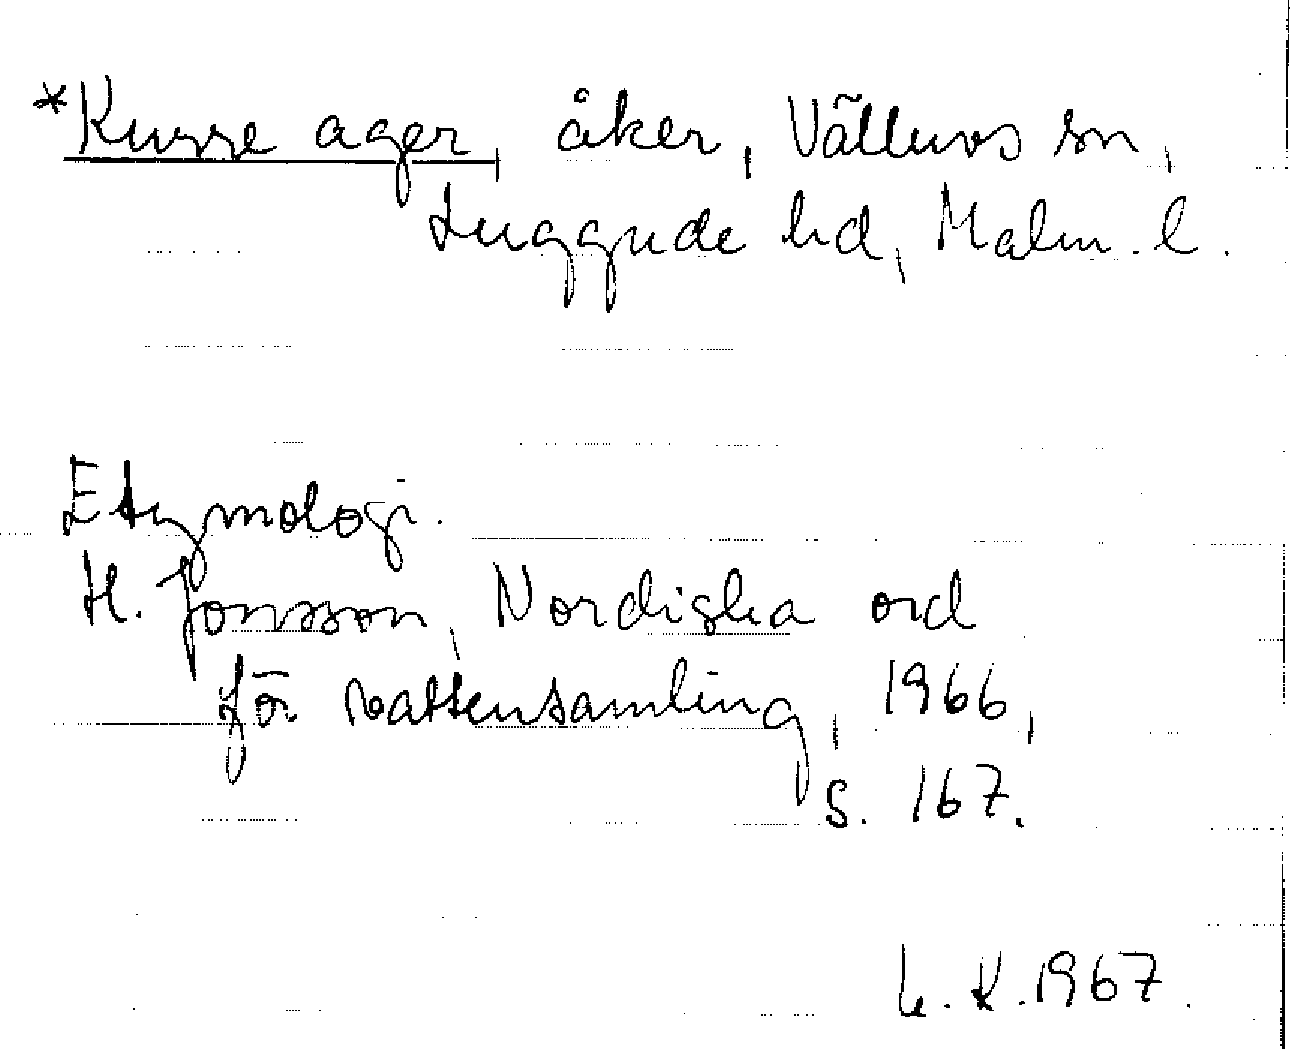 *Kusse ager, åker, Välluvs sn,
Luggude hd, Malm. l.
Etymologi.
H. Jonsson, Nordiska ord
för vattensamling, 1966,
s. 167.
K. 1967.